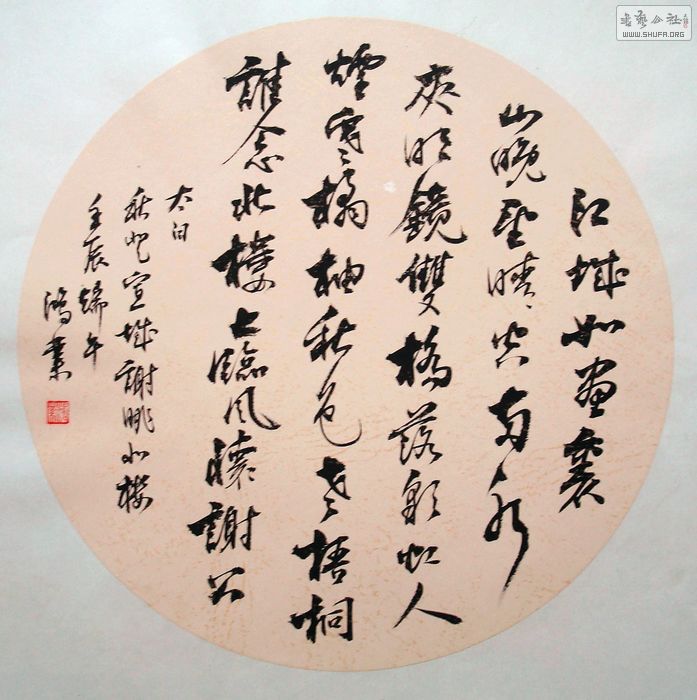 江城如畫裏
山晚望晴空兩水
夾明鏡雙橋落彩虹人
煙寒橘柚秋色老梧桐
誰念北樓上臨風懷謝公
太白
秋登宣城謝朓北樓
壬辰端午
鴻業
書藝公社
WWW.SHUFA.ORG